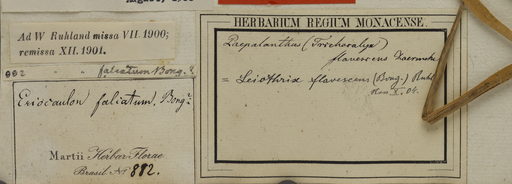 Ad W Ruhland missa VII. 1900;
remissa XII. 1901.
882 " foliatum Bong. ?
Eriocaulon foliatum. Bong?
Martii Herbar. Florae
Brasil. No 882.
HERBARIUM REGIUM MONACENSE.
Paepalanthus (Trichocalyx)
flavescens Koernicke
= Leiothrix flavescens (Bong.) Ruhl.
X. 04.